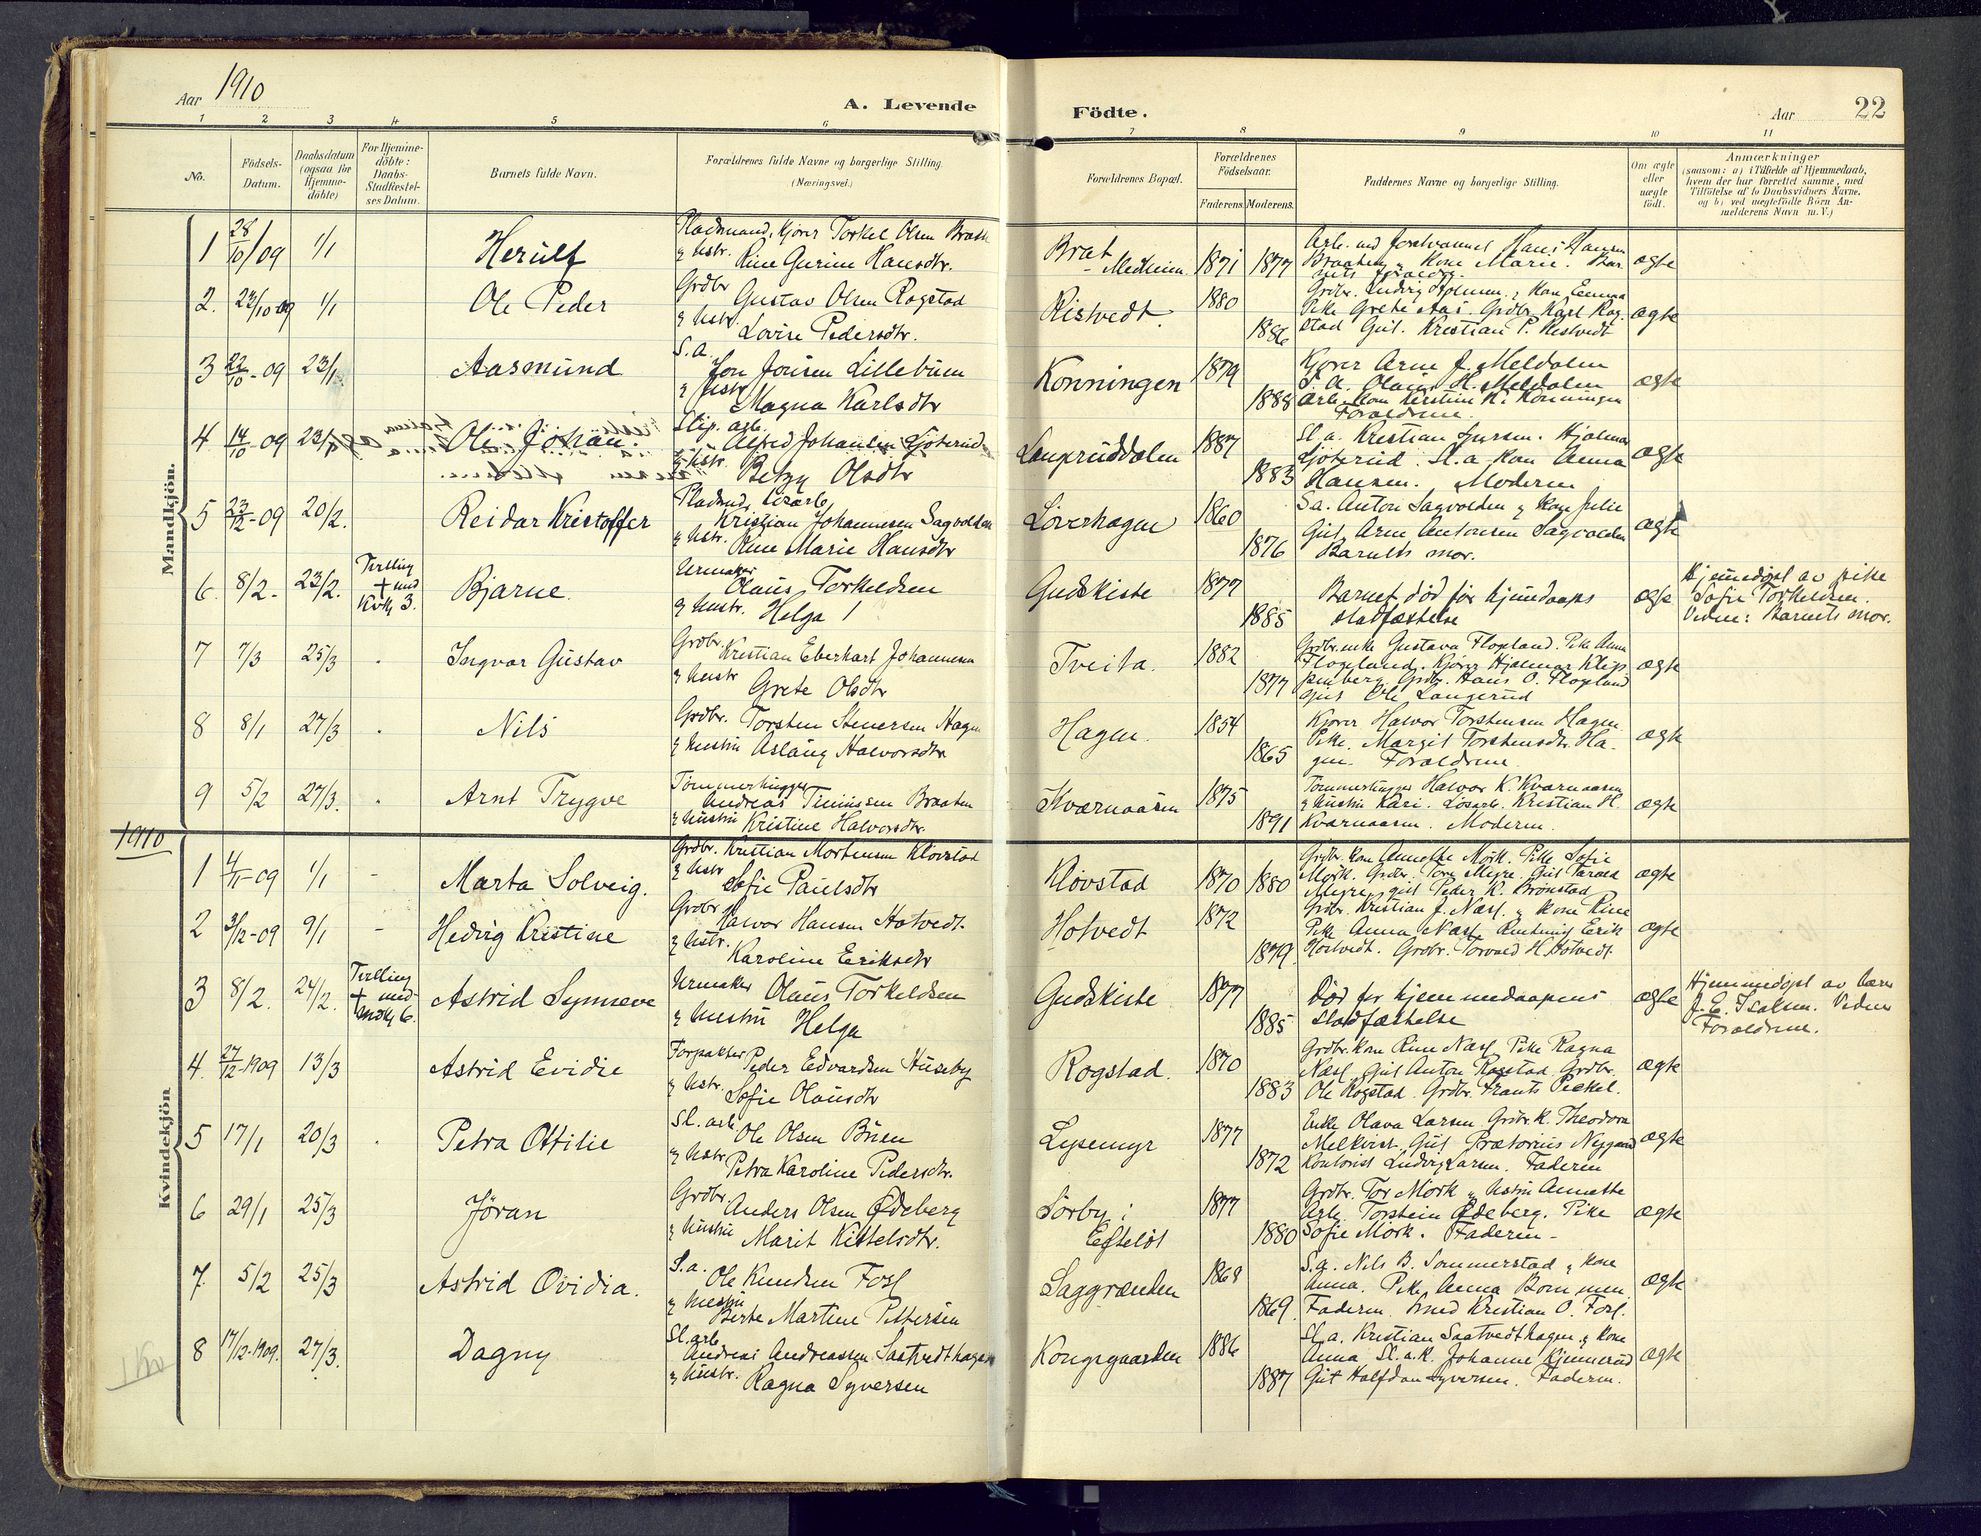 Aar 1910
A. Levende
Födte.
Aar
22
1 2 3 4 5 6 7 8 9 10 11
No.
Födsels-
Datum.
Daabsdatum
(ogsaa for
Hjemme-
döbte)
For Hjemme-
döbte:
Daabs-
Stadfæstel-
ses Datum.
Barnets fulde Navn.
Forældrenes fulde Navne og borgerlige Stilling.
(Næringsvei.)
Forældrenes Bopæl.
Forældrenes
Födselsaar.
Faderens. Moderens.
Faddernes Navne og borgerlige Stilling.
Om ægte
eller
uægte
födt.
Anmærkninger
(saasom: a) i Tilfælde af Hjemmedaab,
hvem der har forrettet samme, med
Tilföielse af to Daabsvidners Navne,
og b) ved uægtefödte Börn An-
melderens Navn m. V.)
Mandkjön.
1 28/10/09 1/1 Herulf
Pladsmand, kjører Torkel Olsen
& hustr. Rine Gurine Hansdtr.
Brat
- Medheim. 1871 1877
Arb. Hans Hansen
Braaten & kone Marie. Bar-
nets forældre.
ægte
2. 23/10-09 1/1 Ole Peder
Grdbr. Gustav Olsen Rogstad
& hustr. Lovise Pedersdtr.
Ristvedt. 1880 1886
Pike Grete Aas. Grdbr. Karl Rog-
stad Gut. Kristian P. Ristvedt
ægte
3 22/10-09 23/1 Aasmund
S.a. Jon Jonsen Lillebuen
& hustr. Magna Karlsdtr
Konningen 1879 1888
Kjører Arne J. Meldalen
S.a. Olaus H. Meldalen
Arb. kone Kirstine K. Konningen
Forældrene.
ægte
4 14/10-09 23/1 Ole Johan.
Slip. arb. Alfred Johansen Ljøterud
& hustr. Betzy Olsdtr
Laupruddalen 1887 1883
Sl. a. Kristian Hjalmar
Ljøterud. Sl.a kone Anna
Hansen. Moderen
ægte
5 23/12-09 20/2. Reidar Kristoffer
Pladsmd,
Kristian Johannesen Sagvolden
& hustr. Rine Marie Hansdtr
Løverhagen 1860 1876
S.a. Anton Sagvolden & kone Julie
Gut. Arne Antonsen Sagvolden
Barnets mor.
ægte
6. 8/2. 23/2.
Tvilling
+ med
Kvk 3.
Bjarne.
Urmaker
Olaus Torkeldsen
& hustr. Helga
Gudskiste 1877 1885
Barnet død før hjemdaaps
stadfæstelse
ægte
Hjemdøpt av pike
Sofie Torkeldsen.
Vidne: Barnets mor.
7 7/3 25/3 Ingvar Gustav
Grdbr. Kristian Eberhart Johannesen
& hustr Grete Olsdtr
Tveita. 1882 1877
Grdbr.enke Gustava Flogeland. Pike Anna
Flogeland. Kjører Hjalmar Klep-
penberg. Grdbr. Hans O. Flogland
Gut Ole Langerud
ægte
8 8/1 27/3 Nils
Grdbr. Torsten Stenersen Hagen
& hustru Aslaug Halvorsdtr
Hagen. 1854 1865
Kjører Halvor Torstensen Hagen
Pike. Margit Torstensdtr. Ha-
gen. Forældrene.
ægte
9 5/2 27/3. Arnt Trygve
Tømmerhugger
Andreas Braaten
& hustru Kristine Halvorsdtr.
Kvarnaasen 1875 1891
Tømmerhugger Halvor K. Kvarnaasen
& hustru Kari. Løsarb. Kristian H.
Kvarnaasen. Moderen.
ægte
1910
Kvindekjön
1 4/11-09 1/1 - Marta Solveig.
Grdbr. Kristian Mortensen Kløvstad
& hustr Sofie Paulsdtr
Kløvstad 1870 1880
Grdbr. kone Annethe Mørk. Pike Sofie
Mørk. Grdbr. Tore Myre. Gut Tarald
Myre, gut Peder K. Brønstad
ægte
2 31/12-09 9/1 - Hedvig Kristine
Grdbr Halvor Hansen Hotvedt.
& hustr. Karoline Eriksdtr
Hotvedt 1872 1879
Grdbr. Kristian J. Næsf. & kone Rine
Pike Anna Næsf. Erik
Hotvedt. Grdbr. Torvald H. Hotvedt.
ægte
3 8/2. 24/2.
Tvilling
+ med
Mdkj 6.
Astrid Synneve
Urmaker Olaus Torkeldsen
& hustru Helga
Gudskiste 1877 1885
Død før hjemmedaapens
stadfæstelse
ægte
Hjemmedøpt av
J. E. Isaksen. Vidne
Forældrene.
4. 27/12-1909 13/3 Astrid Evidie
Forpakter Peder Edvardsen Huseby
& hustr. Sofie Olausdtr
Rogstad. 1870 1883
Grdbr. kone Rine Næsf. Pike Ragna
Næsf. Gut Anton Rogstad. Grdbr.
Ole Rogstad. Grdbr. Frants Peckel.
ægte
5 17/1 20/3 Petra Ottilie
Sl. arb. Ole Olsen Buen
& hustr Petra Karoline Pedersdtr.
Lysemyr 1877 1872
Enke Olava Larsen. Grdbr. K. Theodora
Melkvist. Gut. Prætorius Nygaard
Kontorist Ludvig Larsen. Faderen
ægte
6 29/1 25/3 Jöran
Grdbr. Anders Olsen Ødeberg
& hustru Marit Kittelsdtr.
Sørby i
Efteløt 1877 1880
Grdbr. Tor Mørk & hustru Annethe
Arb. Torstein Ødeberg. Pike
Sofie Mørk. Faderen -
ægte
7. 5/2 25/3 Astrid Ovidia.
S.a. Ole Knudsen Fosf
& hustru
Berte Martine Pettersen
Saggrenden 1868 1869.
S.a. Nils B. Sommerstad & kone
Anna. Pike Anna Bommen.
Faderen. Smed Kristian O. Fosf.
ægte
8 17/12-1909. 27/3. Dagny
Sl.arb
Andreas Andreassen Saatvedthagen
& hustr. Ragna Syversen
Kongsgaarden 1886 1887
Sl.a. Kristian Saatvedthagen & kone
Anna Sl.a.K. Johanne Kjennerud
Gut Halfdan Syversen. Faderen.
ægte